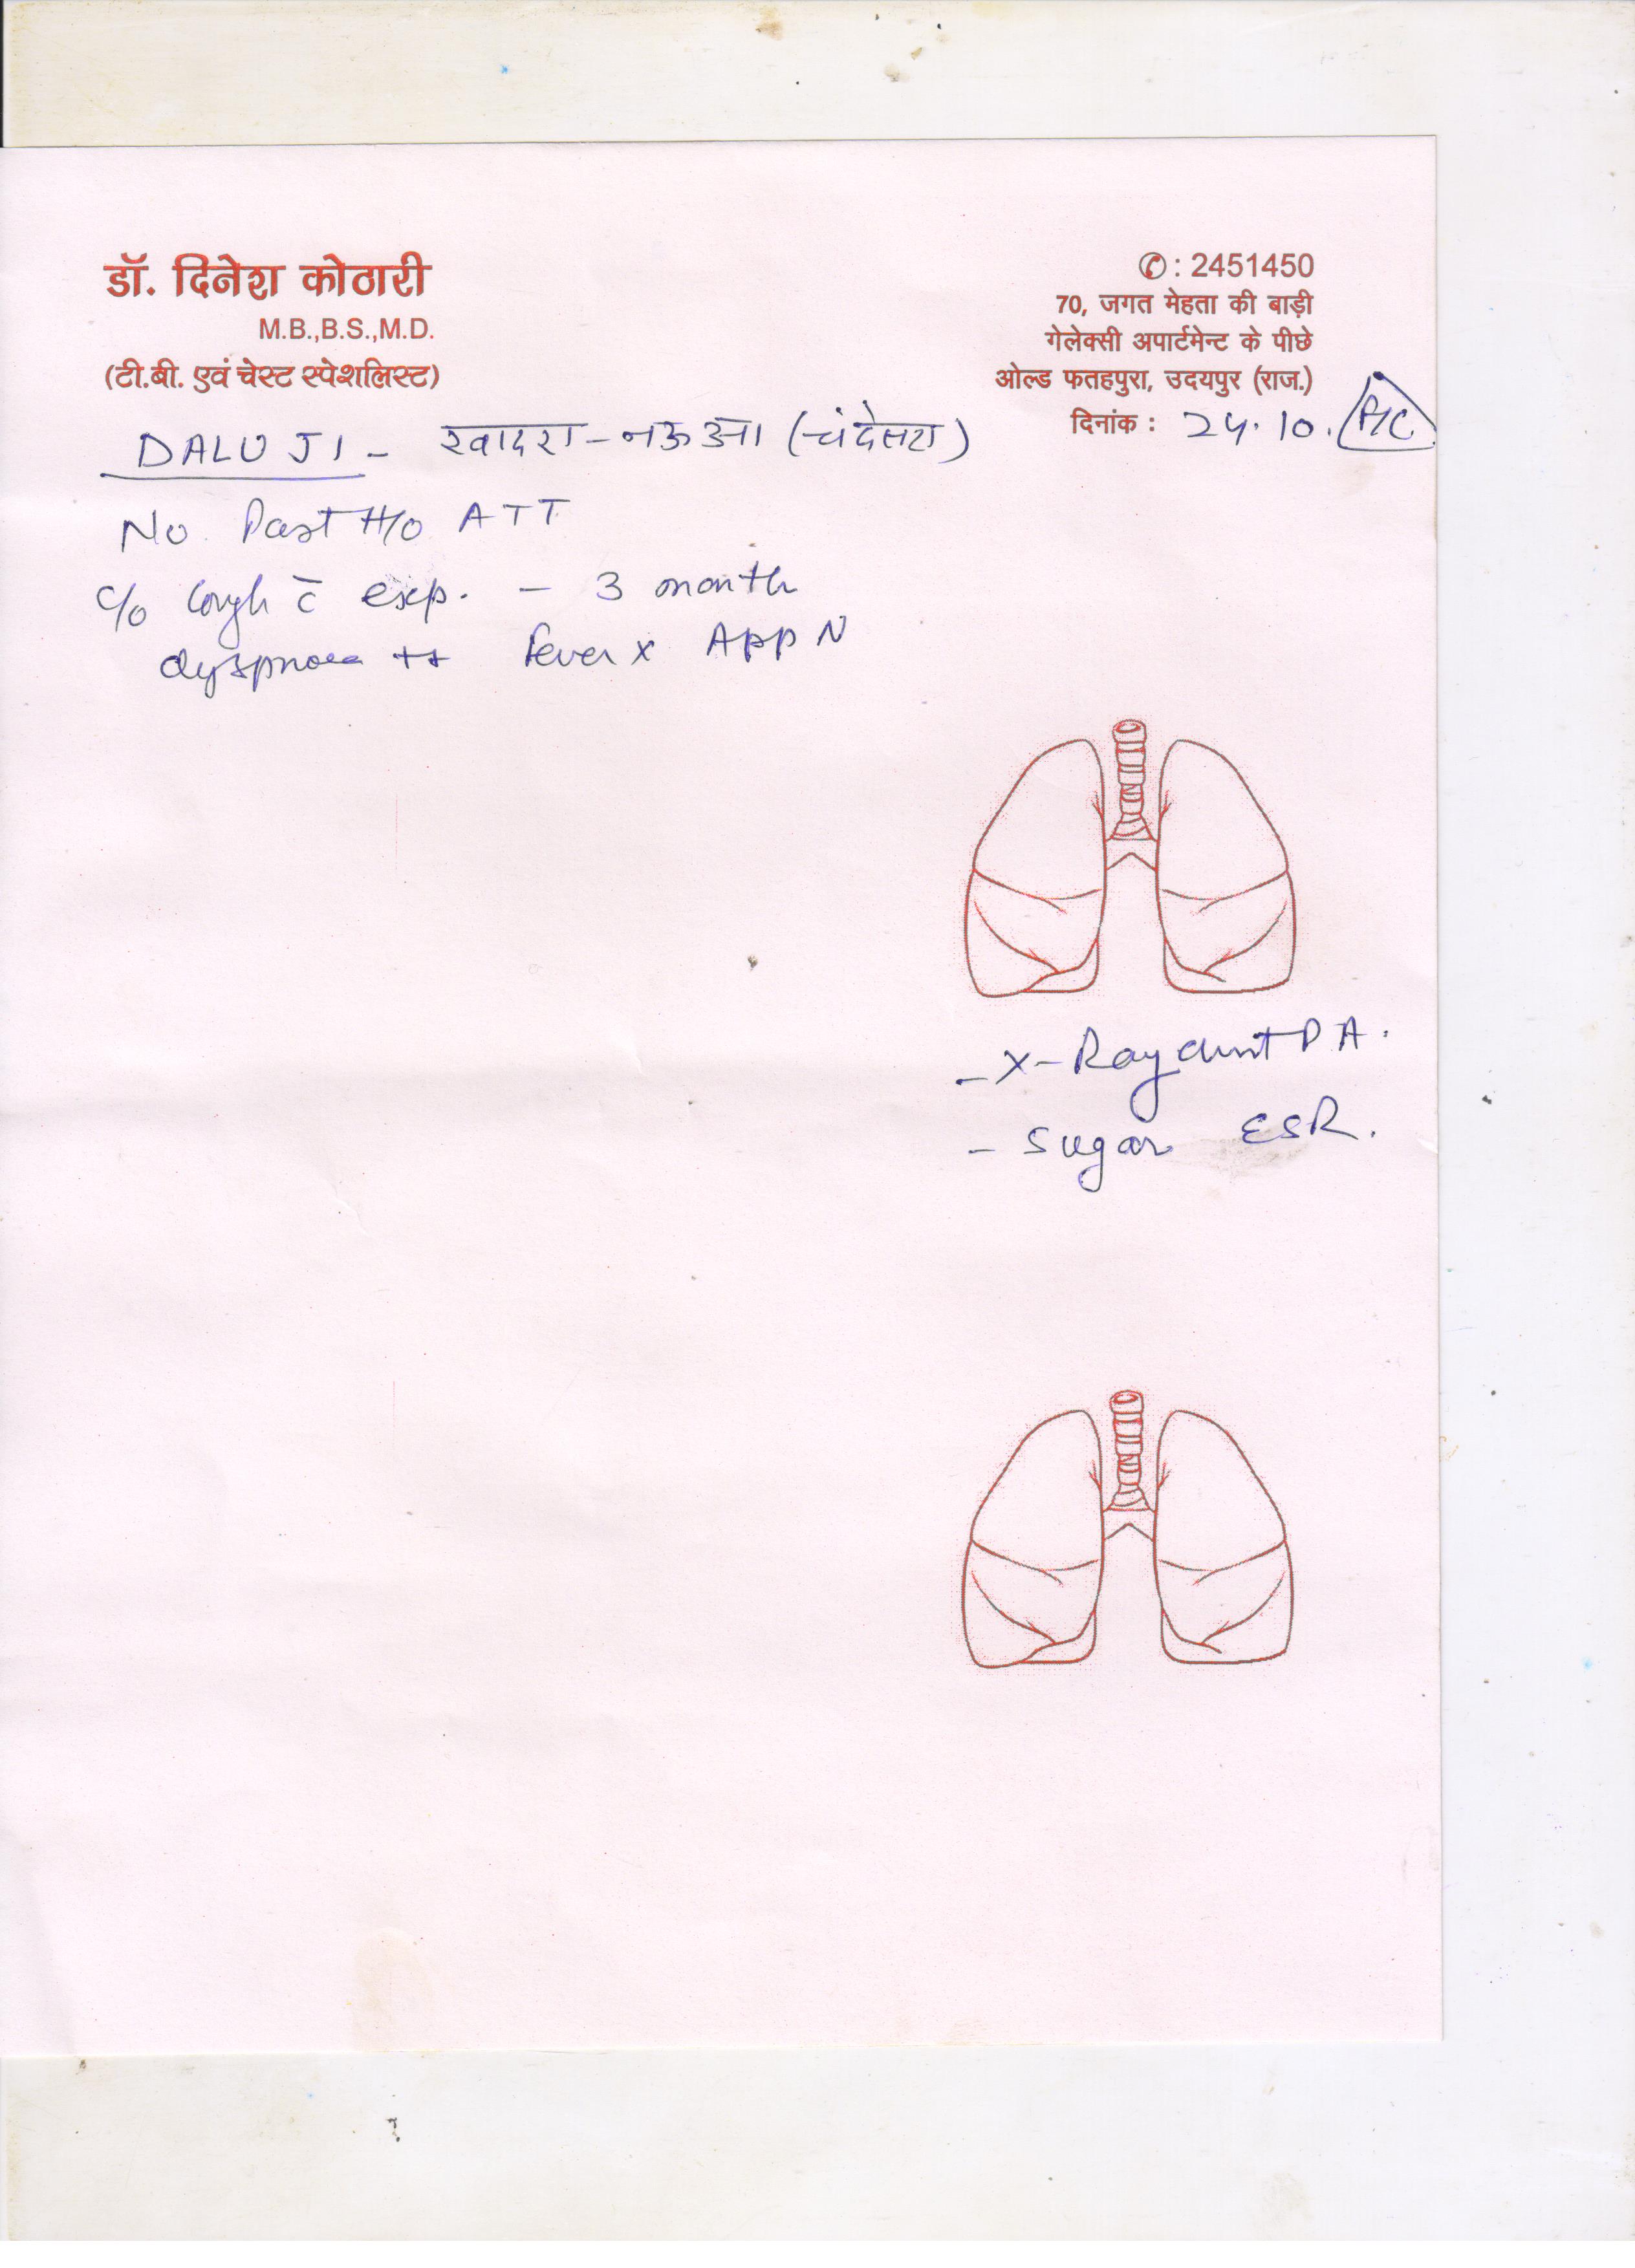 डॉ. दिनेश कोठारी
M.B.,B.S.,M.D.
(टी.बी. एवं चेस्ट स्पेशलिस्ट)
✆ : 2451450
70, जगत मेहता की बाड़ी
गेलेक्सी अपार्टमेन्ट के पीछे
ओल्ड फतहपुरा, उदयपुर (राज.)
दिनांक : 24.10.
DALU JI - खादरा - नऊआ (चंदेसरा)
No Past H/o ATT
c/o Cough c̄ exp. - 3 month
dyspnoea ++ Fever x App N
- X-Ray chest PA.
- Sugar ESR.